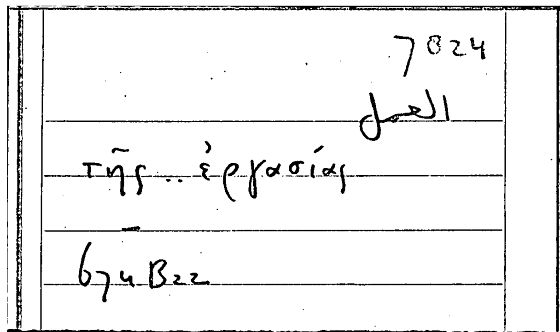 7024
العمل
τῆς .. ἐργασίας
674 B22